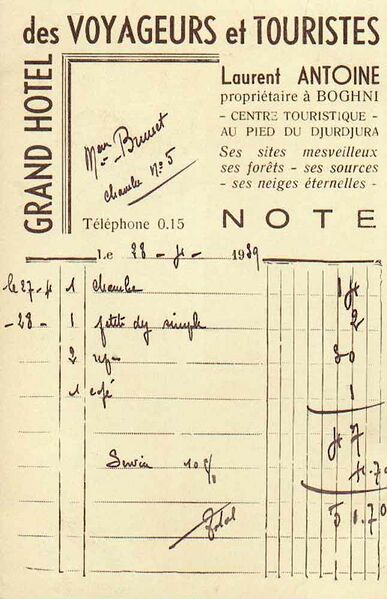 GRAND HOTEL
des VOYAGEURS et TOURISTES
Laurent ANTOINE
propriétaire à BOGHNI
- CENTRE TOURISTIQUE -
AU PIED DU DJURDJURA
Ses sites mesveilleux
ses forêts - ses sources
- ses neiges éternelles -
Brunet
chambre No 5
Téléphone 0.15
NOTE
Le 28 - 4 - 1939
le 27-4 1 chambre 14
-28- 1 petit dej simple 2
2 rep- 30
1 café 1
47
Service 10% 4.70
Total 51.70